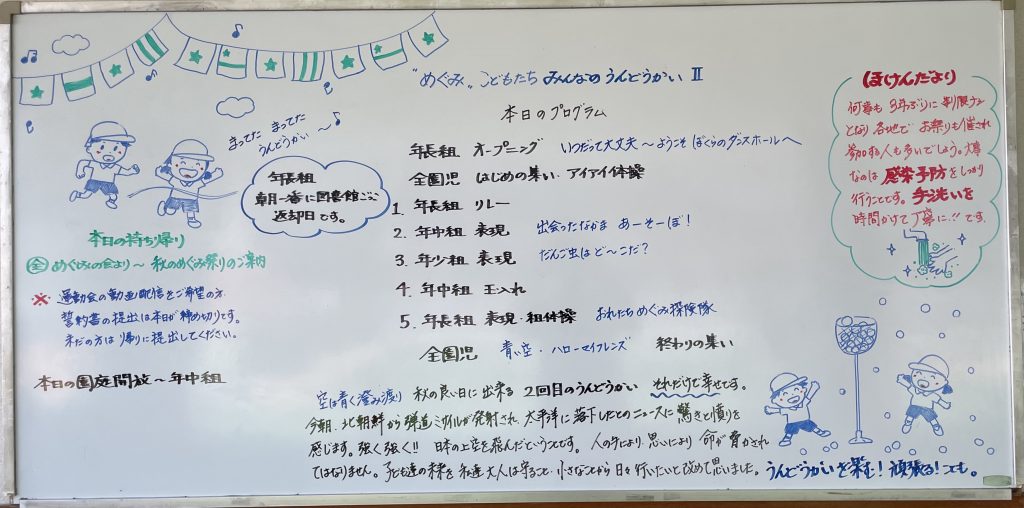 "めぐみ" こどもたち みんなの うんどうかい Ⅱ
本日のプログラム
年長組 オープニング いつだって大丈夫 ～ようこそ ぼくらのダンスホールへ
全園児 はじめの集い・アイアイ体操
1. 年長組 リレー
2. 年中組 表現 出会ったなかま あーそーぼ!
3. 年少組 表現 だんご虫はど～こだ?
4. 年中組 玉入れ
5. 年長組 表現・組体操 おれたちめぐみ探険隊
全園児 青い空・ハローマイフレンズ 終わりの集い
まってた まってた
うんどうかい ～♪
年長組
朝一番に図書館ごっこ
返却日です。
本日の持ち帰り
全 めぐみの会より～ 秋のめぐみ祭りのご案内
※ 運動会の動画配信をご希望の方
誓約書の提出は本日が締め切りです。
未だの方は帰りに提出してください。
本日の園庭開放～年中組
ほけんだより
何事も 3年ぶりに 制限なし
となり 各地で お祭りも催され
参加する人も多いでしょう。大事
なのは 感染予防をしっかり
行うことです。手洗いを
時間かけて丁寧に!! です
空は青く澄み渡り 秋の良い日に出来る 2回目のうんどうかい それだけで幸せです。
今朝、北朝鮮から弾道ミサイルが発射され、太平洋に落下したとのニュースに 驚きと憤りを
感じます。強く強く!! 日本の上空を飛んだというのです。人の手により、思いにより 命が脅かされ
てはなりません。子ども達の未来を 私達大人は守ること、小さなことから日々行いたいと改めて思いました。うんどうかいを楽む! 頑張る! 子ども。